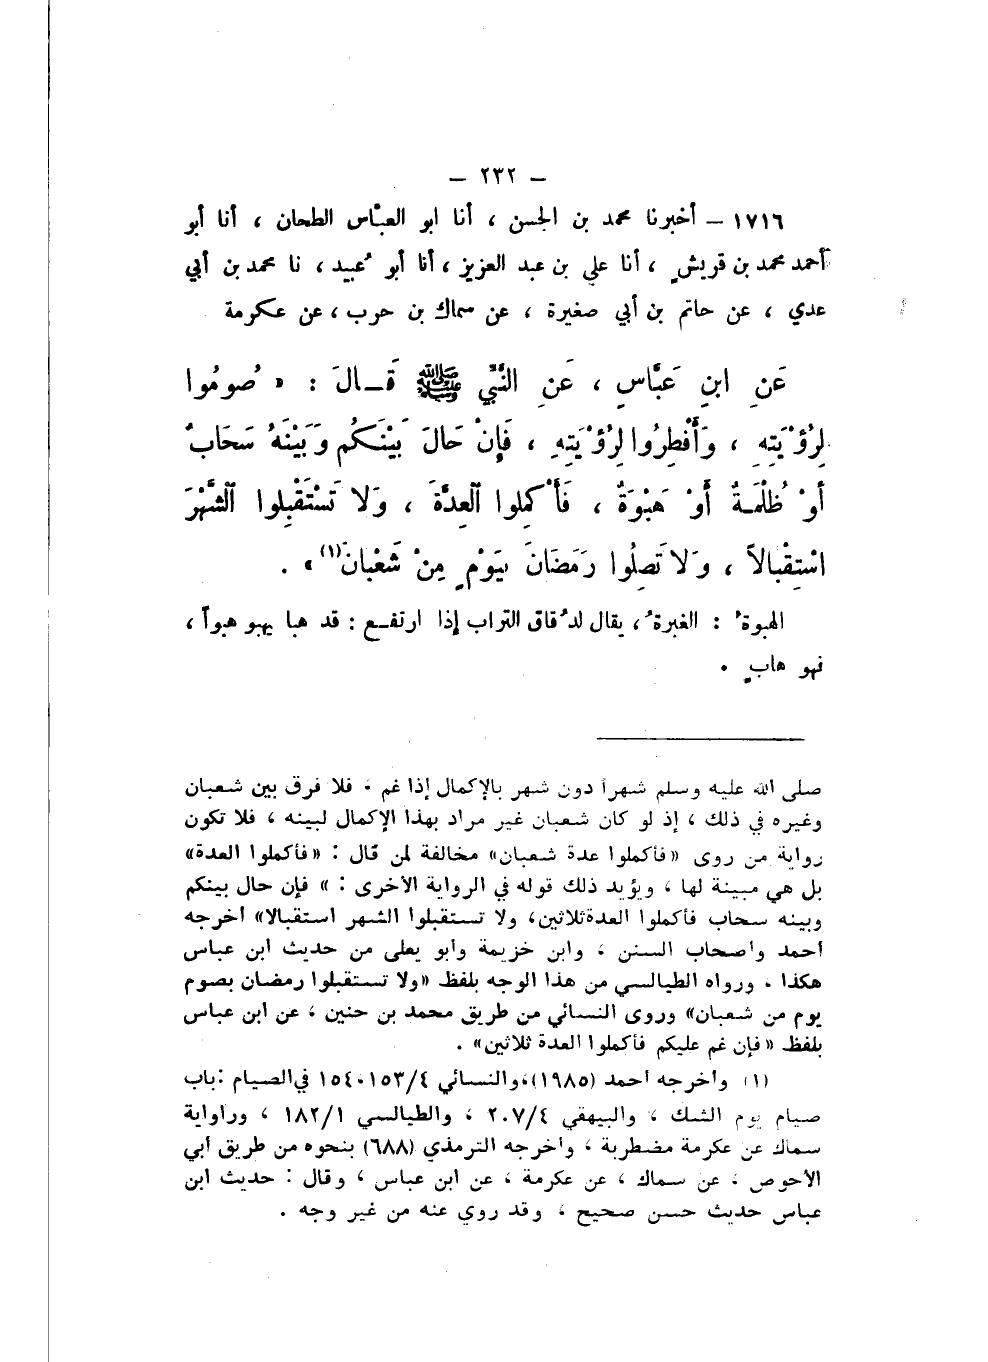 – ٢٣٢ –
١٧١٦ – أخبرنا محمد بن الحسن ، أنا ابو العبّاس الطحان ، أنا أبو
أحمد محمد بن قريشٍ ، أنا علي بن عبد العزيز ، أنا أبو عُبيد ، نا محمد بن أبي
عدي ، عن حاتم بن أبي صغيرة ، عن سماك بن حرب ، عن عكرمة
عَنِ ابنِ عَبَّاسٍ ، عَنِ النَّبِيِّ ﷺ قَـالَ : « صُومُوا
لِرُؤْيَتِهِ ، وَأَفْطِرُوا لِرُؤْيَتِهِ ، فَإِنْ حَالَ بَيْنَكُم وَبَيْنَهُ سَحَابٌ
أَوْ ظُلْمَةٌ أَوْ هَبْوَةٌ ، فَأَكْمِلوا ٱلعِدَّةَ ، وَلا تَسْتَقْبِلوا ٱلشَّهْرَ
اسْتِقْبالاً ، وَلا تَصِلُوا رَمَضَانَ بِيَوْمٍ مِنْ شَعْبانَ(١)» .
الهبوةُ : الغبرةُ ، يقال لدُقاق التراب إذا ارتفـع : قد هبا يهبو هبواً ،
فهو هابٍ .
صلى الله عليه وسلم شهراً دون شهر بالإكمال إذا غم ، فلا فرق بين شعبان
وغيره في ذلك ، إذ لو كان شعبان غير مراد بهذا الإكمال لبينه ، فلا تكون
رواية من روى «فأكملوا عدة شعبان» مخالفة لمن قال : «فأكملوا العدة»
بل هي مبينة لها ، ويؤيد ذلك قوله في الرواية الأخرى : » فإن حال بينكم
وبينه سحاب فأكملوا العدة ثلاثين، ولا تستقبلوا الشهر استقبالا» أخرجه
أحمد وأصحاب السنن ، وابن خزيمة وأبو يعلى من حديث ابن عباس
هكذا ، ورواه الطيالسي من هذا الوجه بلفظ «ولا تستقبلوا رمضان بصوم
يوم من شعبان» وروى النسائي من طريق محمد بن حنين ، عن ابن عباس
بلفظ «فإن غم عليكم فأكملوا العدة ثلاثين» .
(١) وأخرجه أحمد (١٩٨٥)، والنسائي ١٥٣/٤، ١٥٤ في الصيام : باب
صيام يوم الشك ، والبيهقي ٢٠٧/٤ ، والطيالسي ١٨٢/١ ، وراواية
سماك عن عكرمة مضطربة ، وأخرجه الترمذي (٦٨٨) بنحوه من طريق أبي
الأحوص ، عن سماك ، عن عكرمة ، عن ابن عباس ، وقال : حديث ابن
عباس حديث حسن صحيح ، وقد روي عنه من غير وجه .